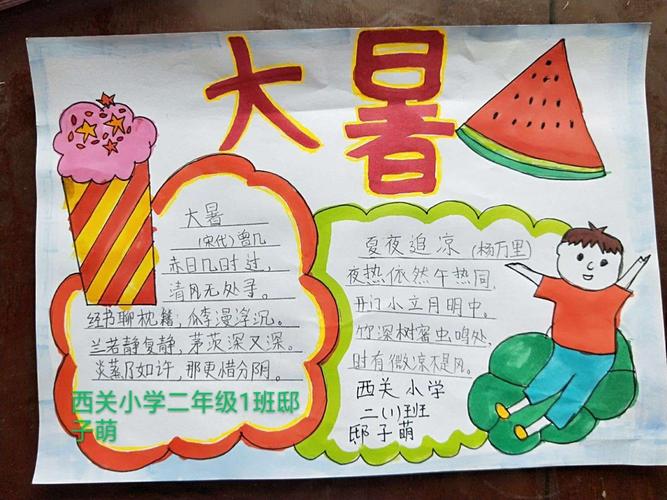 大暑
大暑
(宋代) 曾几
赤日几时过,
清风无处寻。
经书聊枕籍, 瓜李漫浮沉。
兰若静复静, 茅茨深又深。
炎蒸乃如许, 那更惜分阴。
西关小学二年级1班邸
子萌
夏夜追凉 (杨万里)
夜热依然午热同,
开门小立月明中。
竹深树密虫鸣处,
时有微凉不是风。
西关小学
二(1)班
邸子萌